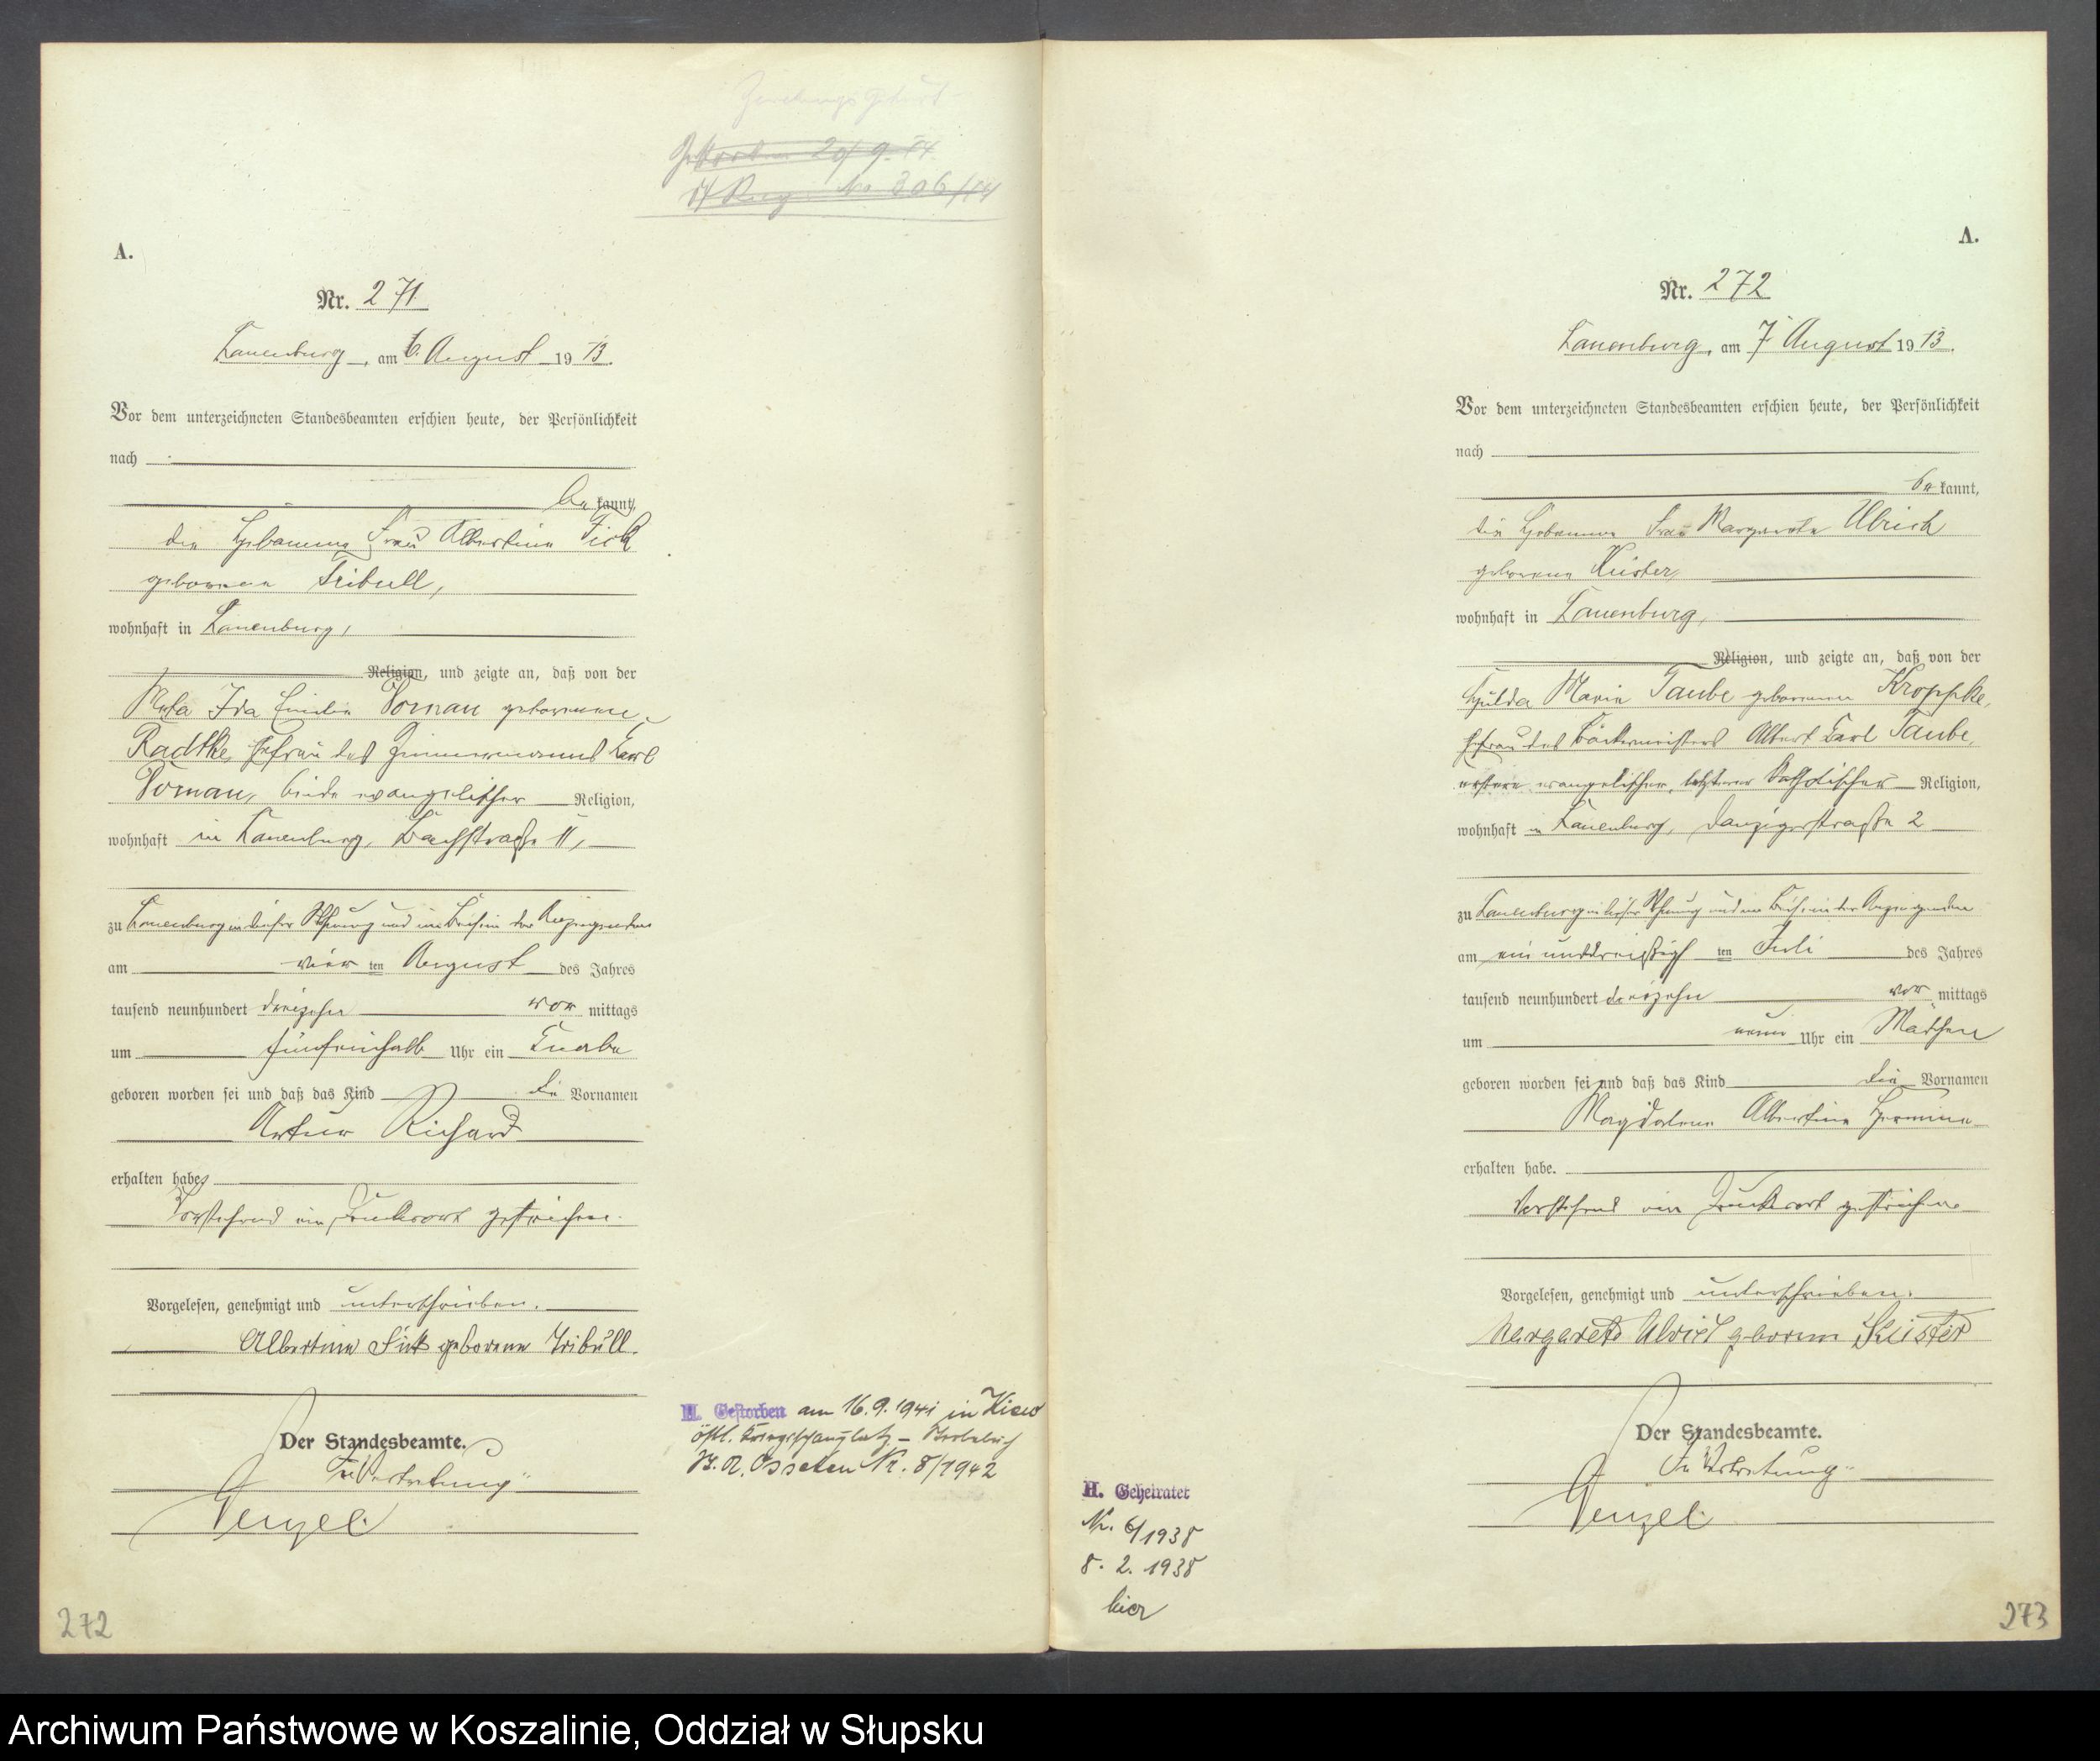 A.
Nr. 271
Lauenburg, am 6. August 1913.
Vor dem unterzeichneten Standesbeamten erschien heute, der Persönlichkeit
nach
be kannt,
die Hebamme Frau Albertine Fick
geborene Tribull,
wohnhaft in Lauenburg,
Religion, und zeigte an, daß von der
Ida Emilie Pomau geborenen
Radtke, Ehefrau des Zimmermanns Karl
Pomau, beide evangelischer Religion,
wohnhaft in Lauenburg, Bachstraße 11,
zu Lauenburg in dieser Wohnung und im Beisein der Anzeigenden
am vier ten August des Jahres
tausend neunhundert dreizehn vor mittags
um fünfeinhalb Uhr ein Knabe
geboren worden sei und daß das Kind die Vornamen
Artur Richard
erhalten habe,
Vorstehend ein Druckwort gestrichen.
Vorgelesen, genehmigt und unterschrieben.
Albertine Fick geborene Tribull.
Der Standesbeamte.
In Vertretung
272
Gestorben 20/9.
No 306/
H. Gestorben am 16.9.1941 in Kiew
östl. Kriegsschauplatz –
Nr. 8/1942
A.
Nr. 272
Lauenburg, am 7 August 1913.
Vor dem unterzeichneten Standesbeamten erschien heute, der Persönlichkeit
nach
be kannt,
die Hebamme Frau Margarete Ulrich
geborene Küster,
wohnhaft in Lauenburg,
Religion, und zeigte an, daß von der
Hulda Marie Taube geborenen Kroppke,
Ehefrau des Bäckermeisters Albert Karl Taube,
erstere evangelischer, letzterer katholischer Religion,
wohnhaft in Lauenburg, Danzigerstraße 2
zu Lauenburg in dieser Wohnung und im Beisein der Anzeigenden
am einunddreißig ten Juli des Jahres
tausend neunhundert dreizehn vor mittags
um neun Uhr ein Mädchen
geboren worden sei und daß das Kind die Vornamen
Magdalene Albertine Hermine
erhalten habe.
Vorstehend ein Druckwort gestrichen.
Vorgelesen, genehmigt und unterschrieben.
Margarete Ulrich geboren Küster
Der Standesbeamte.
In Vertretung
H. Geheiratet
Nr. 6/1938
8. 2. 1938
hier
273
Archiwum Państwowe w Koszalinie, Oddział w Słupsku